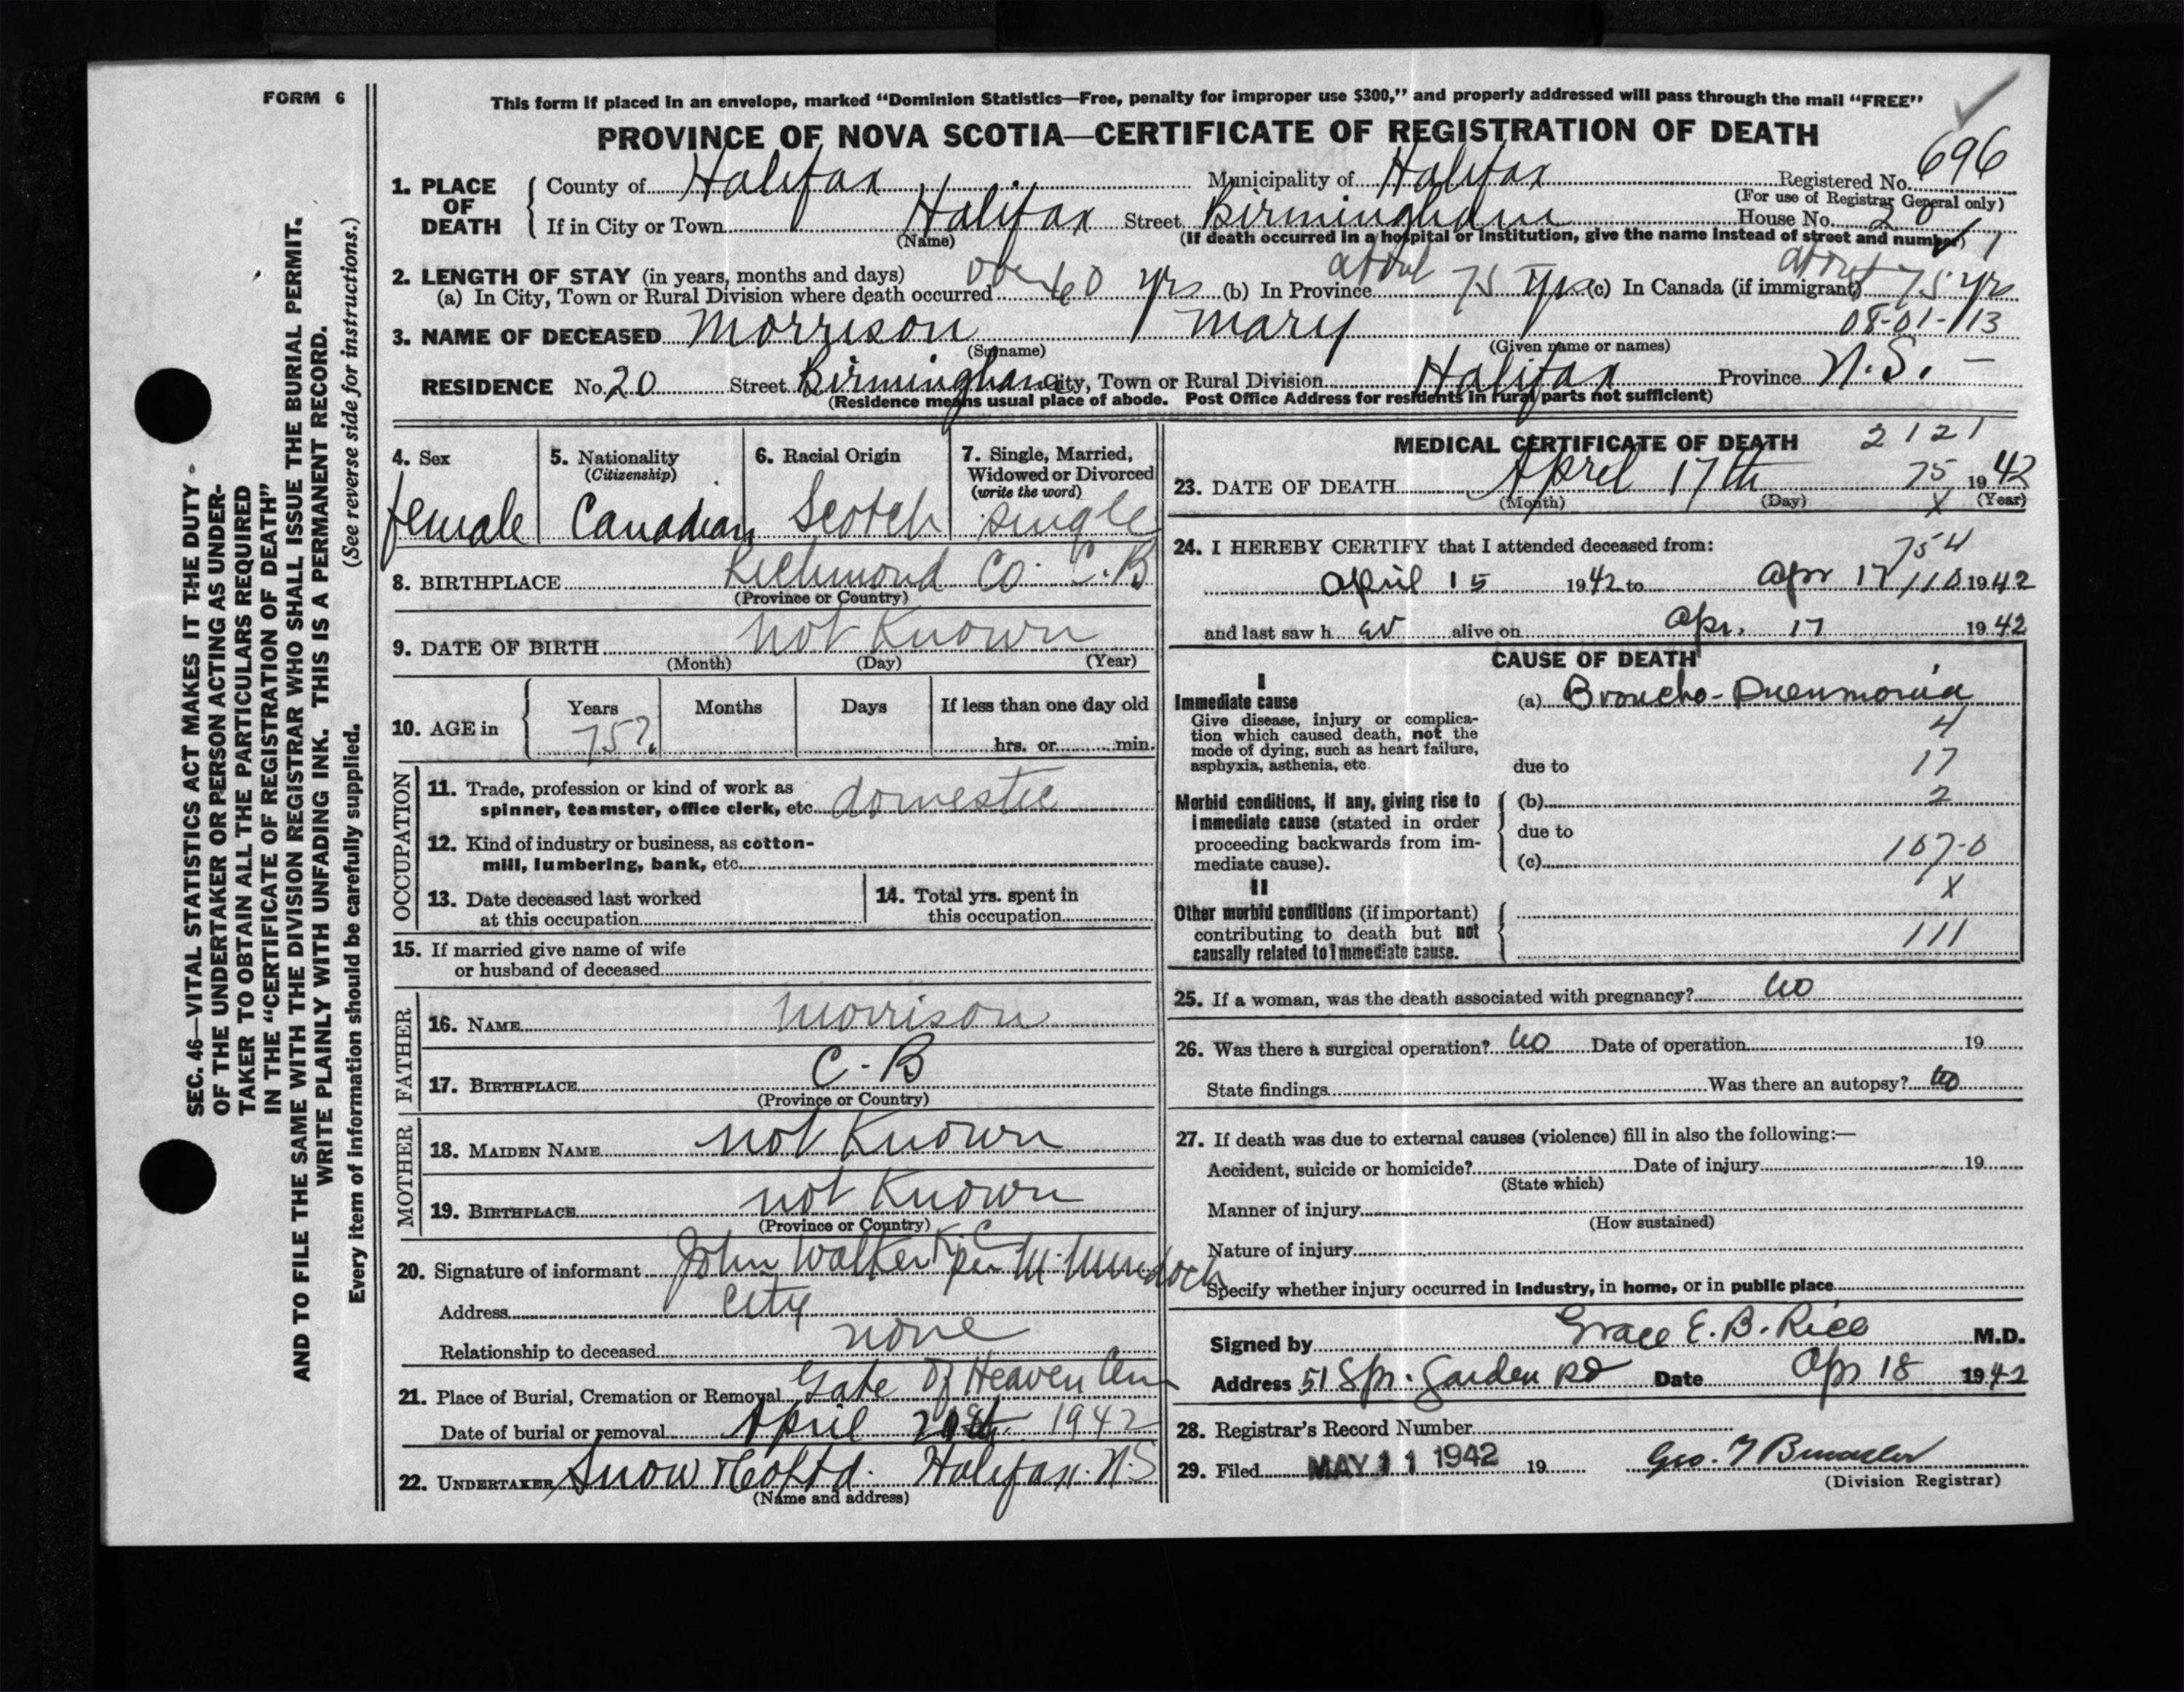 FORM 6
This form if placed in an envelope, marked "Dominion Statistics—Free, penalty for improper use $300," and properly addressed will pass through the mail "FREE"
PROVINCE OF NOVA SCOTIA—CERTIFICATE OF REGISTRATION OF DEATH
696
1. PLACE OF DEATH County of Halifax Municipality of Halifax Registered No.
(For use of Registrar General only)
If in City or Town Halifax Street Birmingham House No. 20
(Name) (If death occurred in a hospital or institution, give the name instead of street and number) 1
2. LENGTH OF STAY (in years, months and days)
(a) In City, Town or Rural Division where death occurred 60 yrs (b) In Province about 75 yrs (c) In Canada (if immigrant) about 75 yrs
3. NAME OF DECEASED Morrison Mary 08-01-113
(Surname) (Given name or names)
RESIDENCE No. 20 Street Birmingham City, Town or Rural Division Halifax Province N.S. —
(Residence means usual place of abode. Post Office Address for residents in rural parts not sufficient)
4. Sex female
5. Nationality (Citizenship) Canadian
6. Racial Origin Scotch
7. Single, Married, Widowed or Divorced (write the word) single
8. BIRTHPLACE Richmond Co. C.B
(Province or Country)
9. DATE OF BIRTH not Known
(Month) (Day) (Year)
10. AGE in Years 75? Months Days If less than one day old
hrs. or min.
OCCUPATION
11. Trade, profession or kind of work as
spinner, teamster, office clerk, etc. domestic
12. Kind of industry or business, as cotton-
mill, lumbering, bank, etc.
13. Date deceased last worked
at this occupation
14. Total yrs. spent in
this occupation
15. If married give name of wife
or husband of deceased
FATHER
16. NAME Morrison
17. BIRTHPLACE C-B
(Province or Country)
MOTHER
18. MAIDEN NAME not Known
19. BIRTHPLACE not Known
(Province or Country)
20. Signature of informant John Walker K.C per M. Murdoch
Address City
Relationship to deceased none
21. Place of Burial, Cremation or Removal Gate of Heaven Cem
Date of burial or removal April 1942
22. UNDERTAKER Snow & Co Ltd. Halifax. N.S
(Name and address)
MEDICAL CERTIFICATE OF DEATH 2121
23. DATE OF DEATH April 17th 75 1942
(Month) (Day) X (Year)
24. I HEREBY CERTIFY that I attended deceased from: 754
April 15 1942 to Apr 17 110 1942
and last saw h er alive on Apr. 17 1942
CAUSE OF DEATH
I
Immediate cause (a) Broncho-Pneumonia
Give disease, injury or complica-
tion which caused death, not the
mode of dying, such as heart failure,
asphyxia, asthenia, etc.
4
due to 17
Morbid conditions, if any, giving rise to
immediate cause (stated in order
proceeding backwards from im-
mediate cause).
(b) 2
due to
(c) 107-0
X
II
Other morbid conditions (if important)
contributing to death but not
causally related to immediate cause.
111
25. If a woman, was the death associated with pregnancy? no
26. Was there a surgical operation? no Date of operation 19
State findings Was there an autopsy? no
27. If death was due to external causes (violence) fill in also the following:—
Accident, suicide or homicide? Date of injury 19
(State which)
Manner of injury
(How sustained)
Nature of injury
Specify whether injury occurred in industry, in home, or in public place
Signed by Grace E. B. Rice M.D.
Address 51 Spr. Garden Rd Date Apr 18 1942
28. Registrar's Record Number
29. Filed MAY 11 1942 19
(Division Registrar)
SEC. 46—VITAL STATISTICS ACT MAKES IT THE DUTY
OF THE UNDERTAKER OR PERSON ACTING AS UNDER-
TAKER TO OBTAIN ALL THE PARTICULARS REQUIRED
IN THE "CERTIFICATE OF REGISTRATION OF DEATH"
AND TO FILE THE SAME WITH THE DIVISION REGISTRAR WHO SHALL ISSUE THE BURIAL PERMIT.
WRITE PLAINLY WITH UNFADING INK. THIS IS A PERMANENT RECORD.
Every item of information should be carefully supplied. (See reverse side for instructions.)